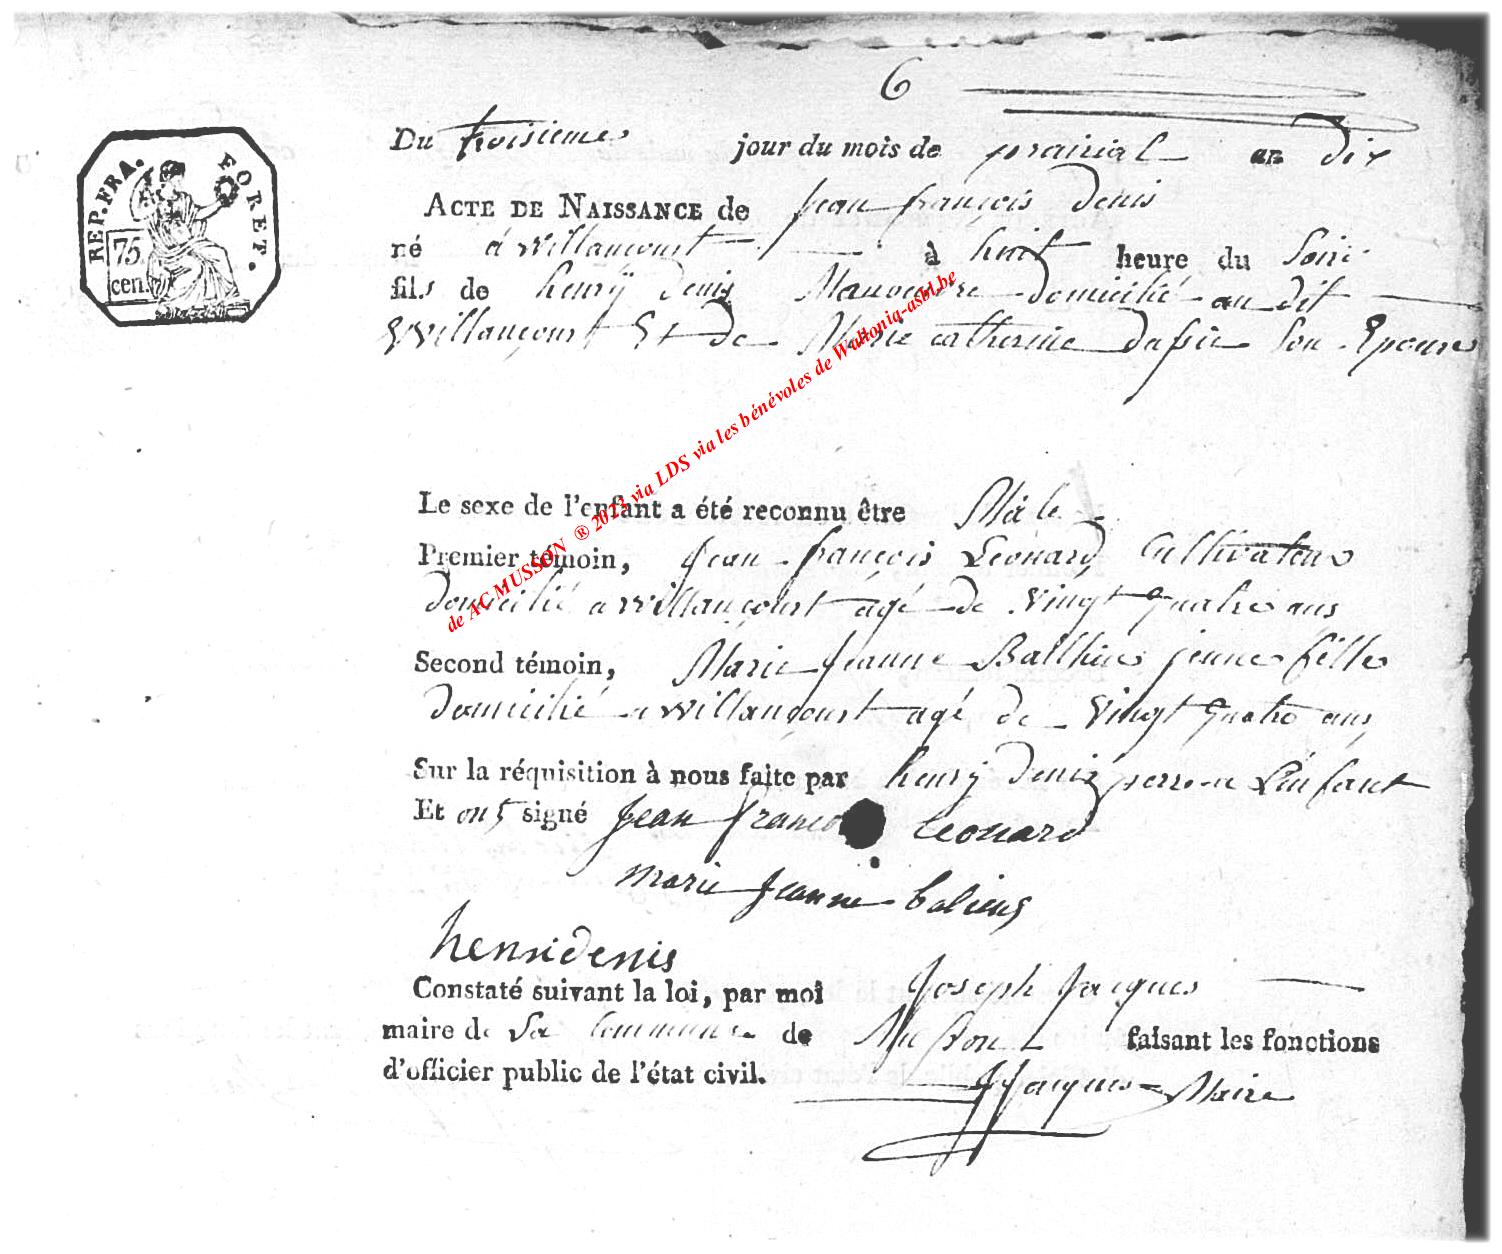 6
REP. FRA. FORET.
75 cen.
Du troisieme jour du mois de prairial an dix
ACTE DE NAISSANCE de jean françois denis
né a willancourt à huit heure du soir
fils de henrÿ denis Manoeuvre domicilié au dit
Willançourt Et de Marie catherine son Epouse
Le sexe de l'enfant a été reconnu être Mâle
Premier témoin, jean françois Leonard Cultivateur
domicilié a willançourt agé de vingt quatre ans
Second témoin, Marie jeanne Balthine jeune fille
domicilié a willançourt agé de vingt quatre ans
Sur la réquisition à nous faite par henrÿ denis perre de L'enfant
Et ont signé jean franco Leonard
marie jeanne baliens
henri denis
Constaté suivant la loi, par moi Joseph Jacques
maire de La commune de Musson faisant les fonctions
d'officier public de l'état civil.
JJacques Maire
de AC MUSSON ® 2023 via LDS via les bénévoles de Wallonia-asbl.be